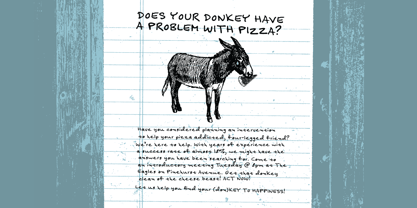 DOES YOUR DONKEY HAVE
A PROBLEM WITH PIZZA?
Have you considered planning an intervention
to help your pizza addicted, four-legged friend?
We're here to help. With years of experience with
a success rate of almost 10%, we might have the
answers you have been searching for. Come to
an introductory meeting Tuesday @ 8pm at The
Eagles on Pinehurst Avenue. Get that donkey
clean of the cheese beast! ACT NOW!
Let us help you find your (don)KEY TO HAPPINESS!